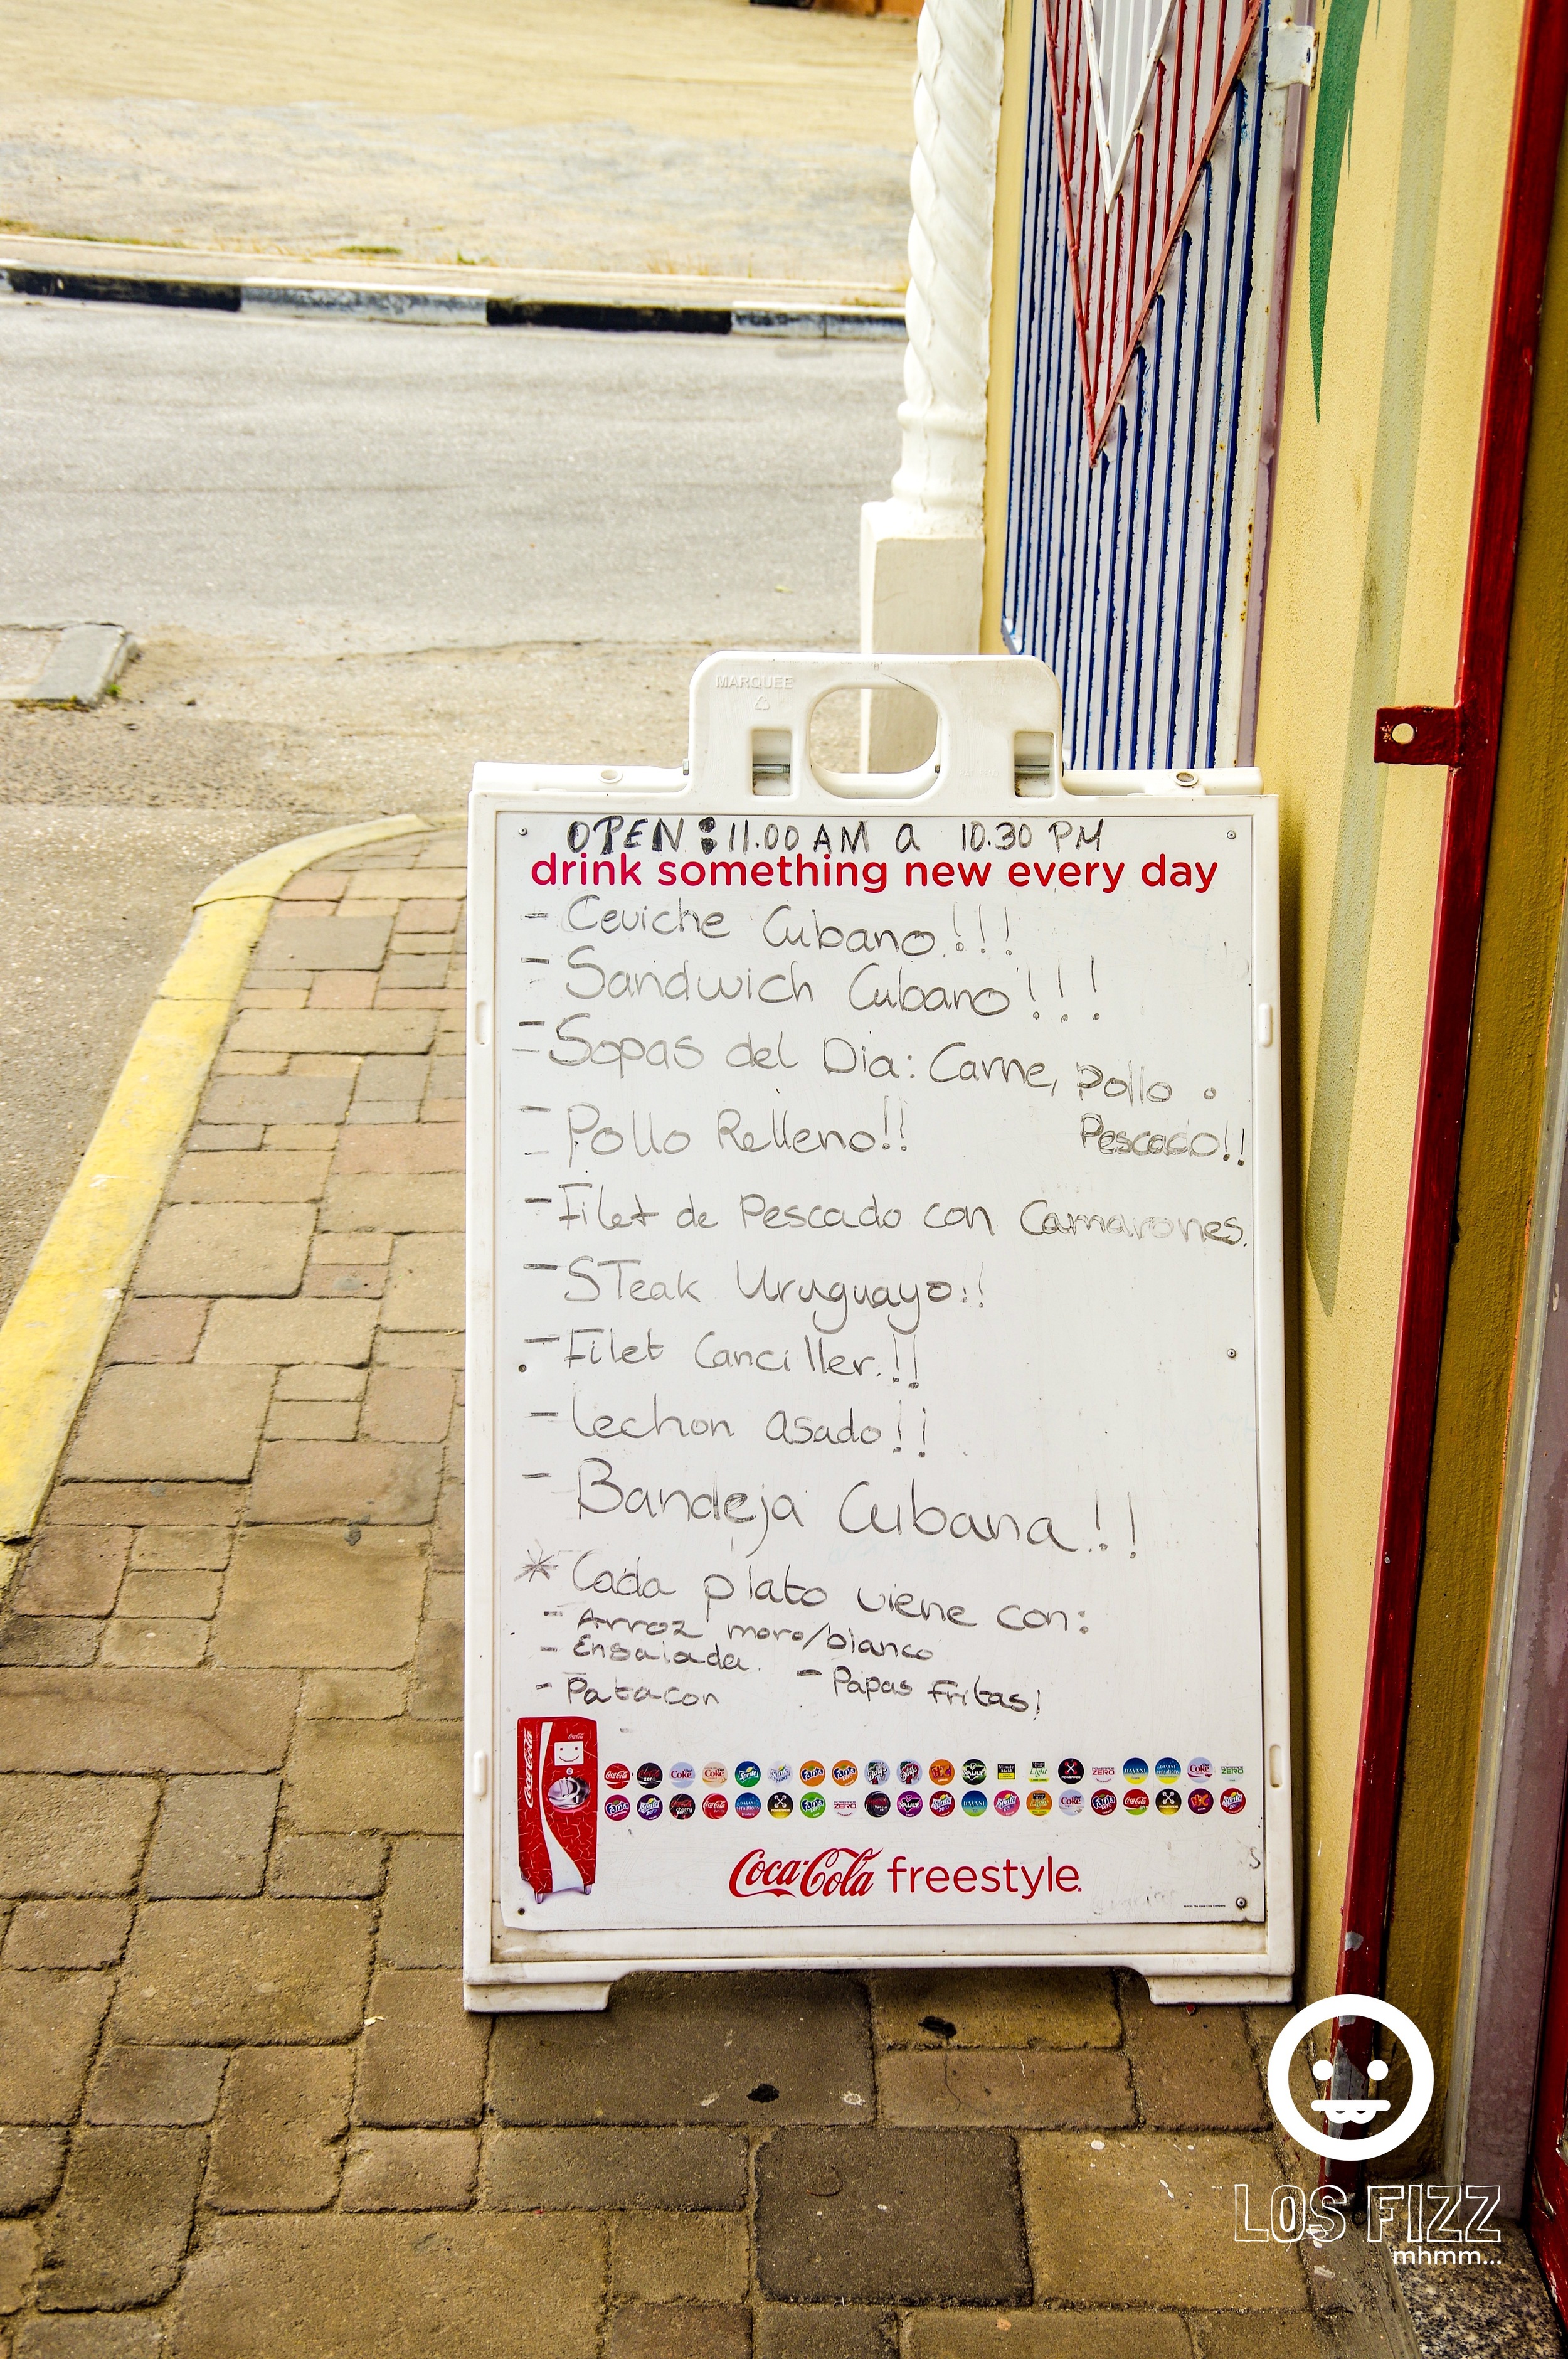 MARQUEE
OPEN: 11.00 AM a 10.30 PM
drink something new every day
- Ceviche Cubano!!!
- Sandwich Cubano!!!
- Sopas del Dia: Carne, Pollo o
Pescado!!
- Pollo Relleno!!
- Filet de Pescado con Camarones.
- STeak Uruguayo!!
- Filet Canciller.!!
- lechon asado!!
- Bandeja Cubana!!
* Cada plato viene con:
- Arroz moro/blanco
- Ensalada.
- Patacon - Papas Fritas!
Coca-Cola freestyle
LOS FIZZ
mhmm...